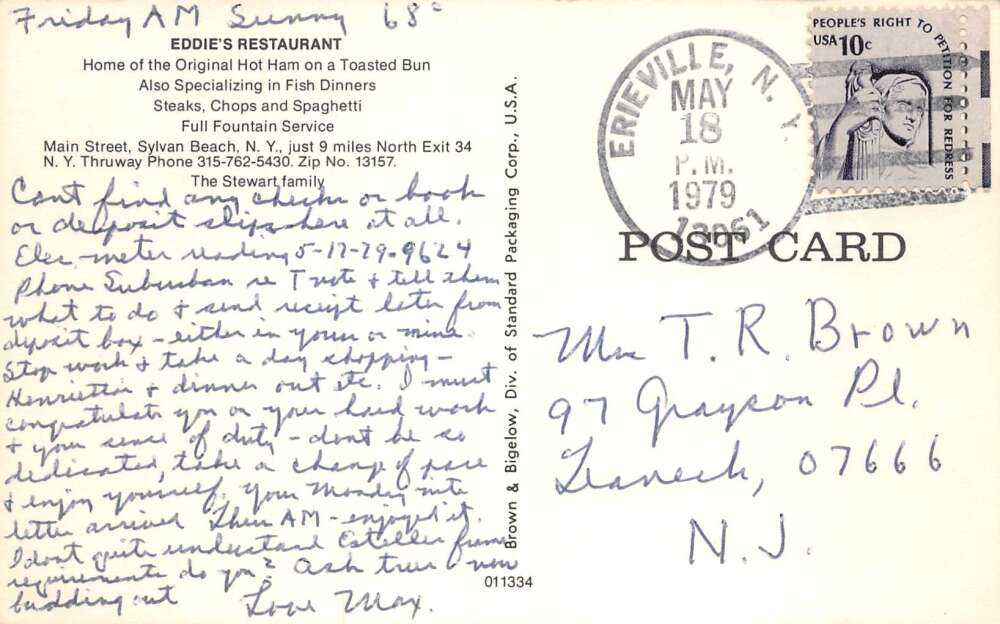 Friday AM Sunny 68°
EDDIE'S RESTAURANT
Home of the Original Hot Ham on a Toasted Bun
Also Specializing in Fish Dinners
Steaks, Chops and Spaghetti
Full Fountain Service
Main Street, Sylvan Beach, N. Y., just 9 miles North Exit 34
N. Y. Thruway Phone 315-762-5430. Zip No. 13157.
The Stewart family
Cant find any checks or book
or deposit slips here at all.
Elec-meter reading 5-17-79-9624
Phone Suburban re T + tell them
what to do + send receipt later from
deposit box - either in yours or mine.
Stop work + take a day shopping -
Henrietta + dinner out etc. I must
congratulate you on your hard work
+ your sense of duty - dont be so
dedicated, take a change of pace
+ enjoy yourself. Your Monday nite
letter arrived Thur AM - enjoyed it.
I dont quite understand Estelles
requirements do you? Ash trees now
budding out Love Max.
Brown & Bigelow, Div. of Standard Packaging Corp., U.S.A.
011334
ERIEVILLE, N. Y.
MAY
18
P.M.
1979
13061
PEOPLE'S RIGHT TO PETITION FOR REDRESS
USA 10c
POST CARD
T. R. Brown
97 Grayson Pl.
Teaneck, 07666
N.J.